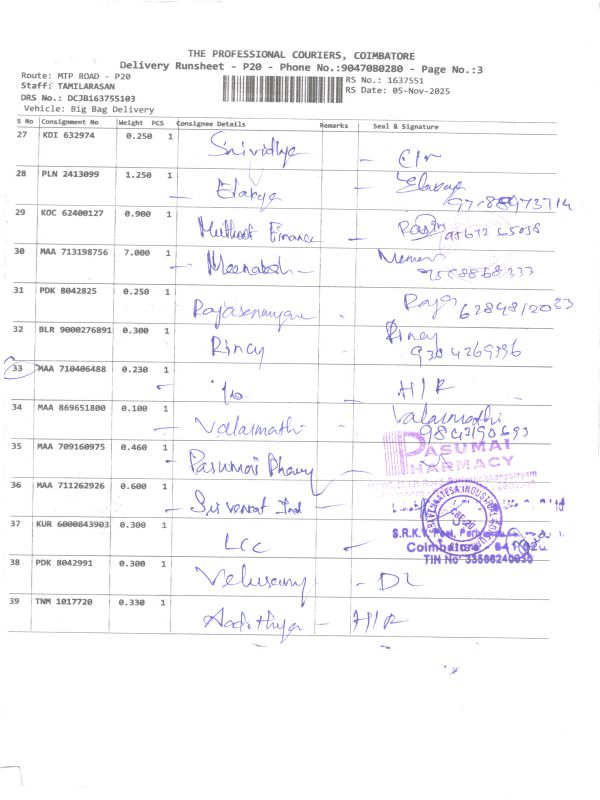 THE PROFESSIONAL COURIERS, COIMBATORE
Delivery Runsheet - P20 - Phone No.:9047080280 - Page No.:3
Route: MTP ROAD - P20
RS No.: 1637551
Staff: TAMILARASAN
RS Date: 05-Nov-2025
DRS No.: DCJB163755103
Vehicle: Big Bag Delivery
S No Consignment No Weight PCS Consignee Details Remarks Seal & Signature
27 KDI 632974 0.250 1 Srividhya - C/r
28 PLN 2413099 1.250 1 - Elakya - Elakya
29 KOC 62400127 0.900 1 Muthoot Finance -
30 MAA 713198756 7.000 1 - Meenakshi -
9568868333
31 PDK 8042825 0.250 1 Raja
32 BLR 9000276891 0.300 1 Rincy - Rincy
9304269396
33 MAA 710406488 0.230 1 - H/R
34 MAA 869651800 0.100 1 - Valarmathi - Valarmathi
9843190693
PASUMAI
PHARMACY
35 MAA 709160975 0.460 1 - Pasumai Pharmy
36 MAA 711262926 0.600 1 - Sri Venkat Ind -
37 KUR 6000843903 0.300 1 LCC -
S.R.K.V. Post,
Coimbatore
TIN No
38 PDK 8042991 0.300 1 Velusamy - DL
39 TNM 1017720 0.330 1 Aadithya - H/R